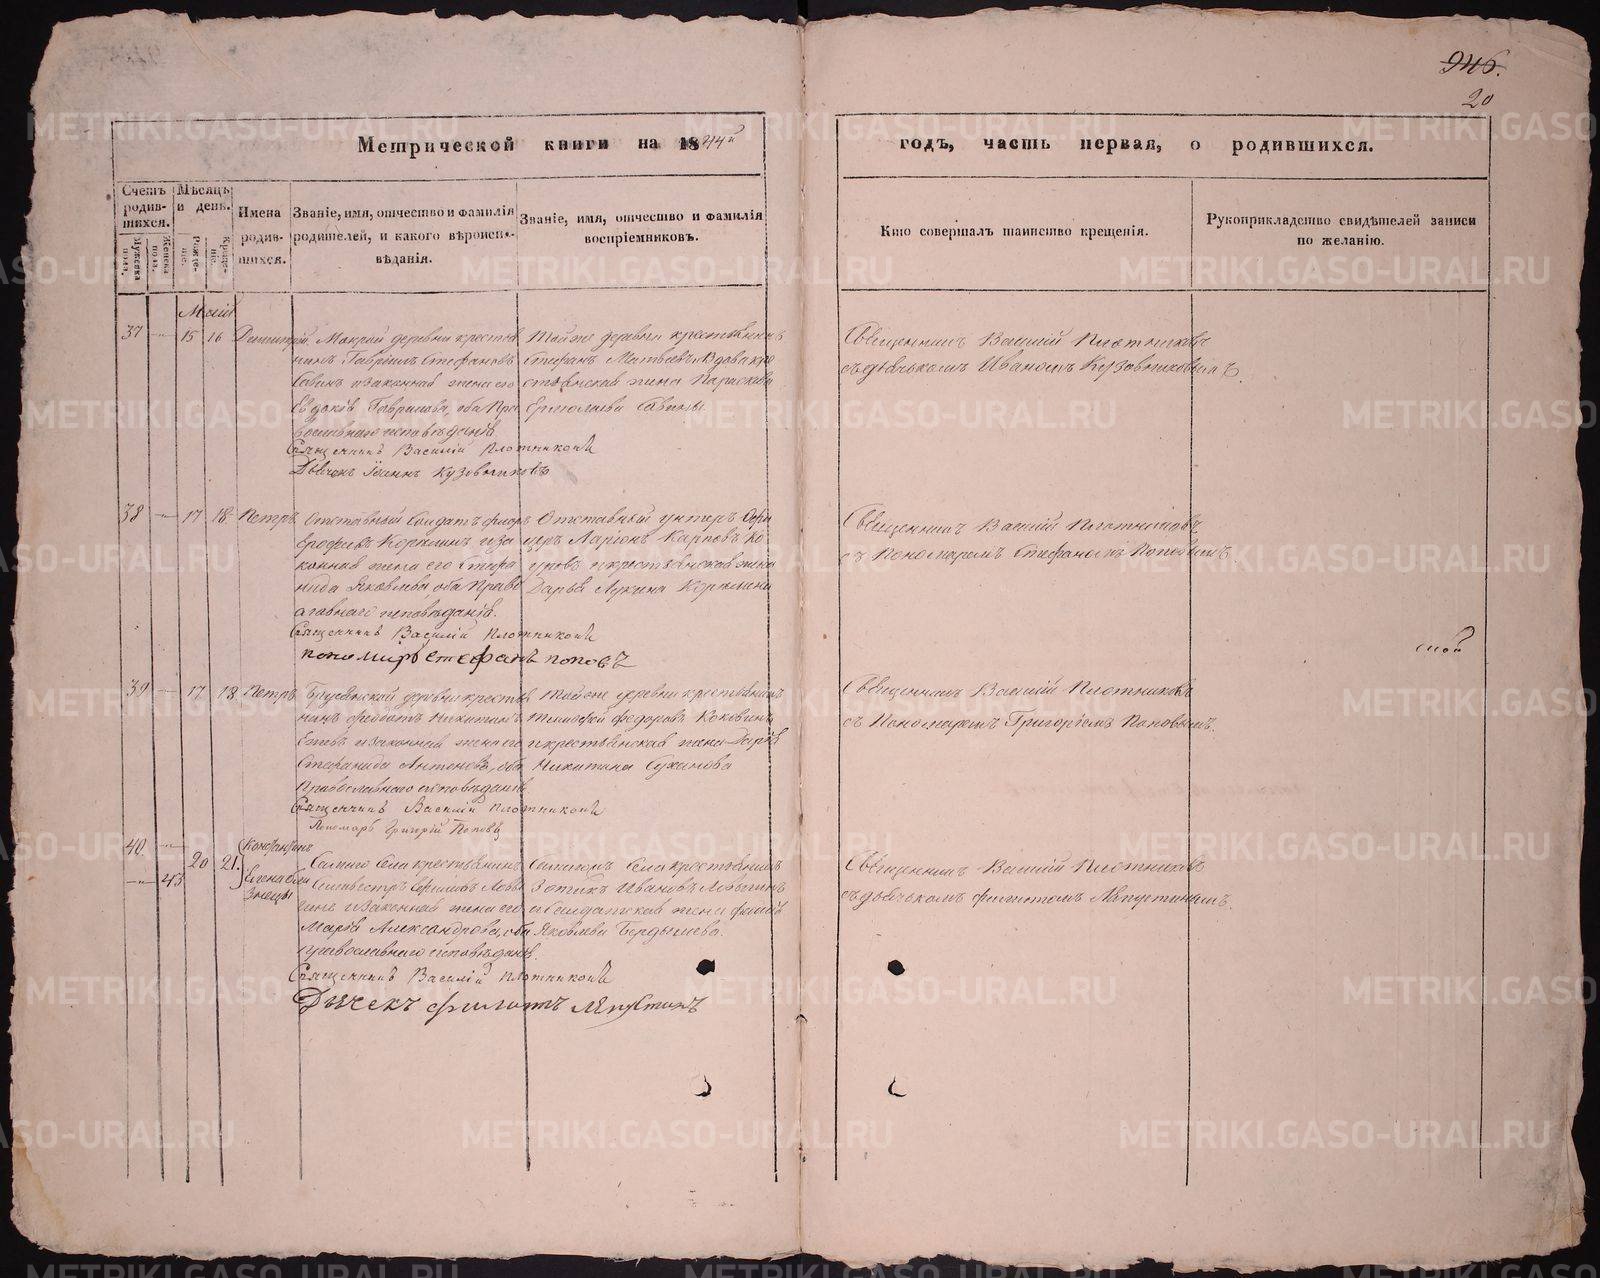 946.
20
Метрической книги на 1844й
годъ, часть первая, о родившихся.
Счетъ родив-шихся.
Мужеска пола.
Женска пола.
Мѣсяцъ и день.
Рожде-ніе.
Креще-ніе.
Имена родив-шихся.
Званіе, имя, отчество и фамилія родителей, и какого вѣроиспо-вѣданія.
Званіе, имя, отчество и фамилія воспріемниковъ.
Кто совершалъ таинство крещенія.
Рукоприкладство свидѣтелей записи по желанію.
Маій
37 15 16 Димитрій
Мокрой деревни крестья
нинъ Гавріилъ Стефановъ
Савинъ и законная жена его
Гаврилова, оба Пра
вославнаго исповѣданія
Священникъ Василій Плотниковъ
Дьячекъ Іоаннъ Кузовниковъ
Тойже деревни крестьянинъ
Стефанъ Матвеевъ
крестьянская жена Параскева
Ермолаева Савины
Священникъ Василій Плотниковъ
съ дьячькомъ Иваномъ Кузовниковымъ
38 17 18 Петръ
Отставный Солдатъ
Ерофѣевъ и за
конная жена его Стефа
нида Яковлева, оба Право
славнаго исповѣданія.
Священникъ Василій Плотниковъ
пономарь Стефанъ поповъ
Отставный унтеръ Офи
церъ Ларіонъ Карповъ
и крестьянская жена
Дарья Лукина
Священникъ Василій Плотниковъ
съ Пономаремъ Стефаномъ Поповымъ
39 17 18 Петръ
деревни крестья
нинъ Федотъ Никитинъ
и законная жена его
Стефанида Антонова, оба
Православнаго исповѣданія
Священникъ Василій Плотниковъ
Пономарь Григорій Поповъ
Тойже деревни крестьянинъ
Тимофей Федоровъ Коковинъ
и крестьянская жена Дарья
Никитина Суханова
Священникъ Василій Плотниковъ
съ Пономаремъ Григоріемъ Поповымъ.
40.
43
20 21.
Константинъ
Елена бли
знецы
Самаго Села крестьянинъ
Селивестръ
и законная жена его
Марья Александрова, оба
православнаго исповѣданія.
Священникъ Василій Плотниковъ
Дьячекъ Филатъ
Села крестьянинъ
Зотикъ Ивановъ
и Солдатская жена
Яковлева Бердышева.
Священникъ Василій Плотниковъ
съ дьячькомъ